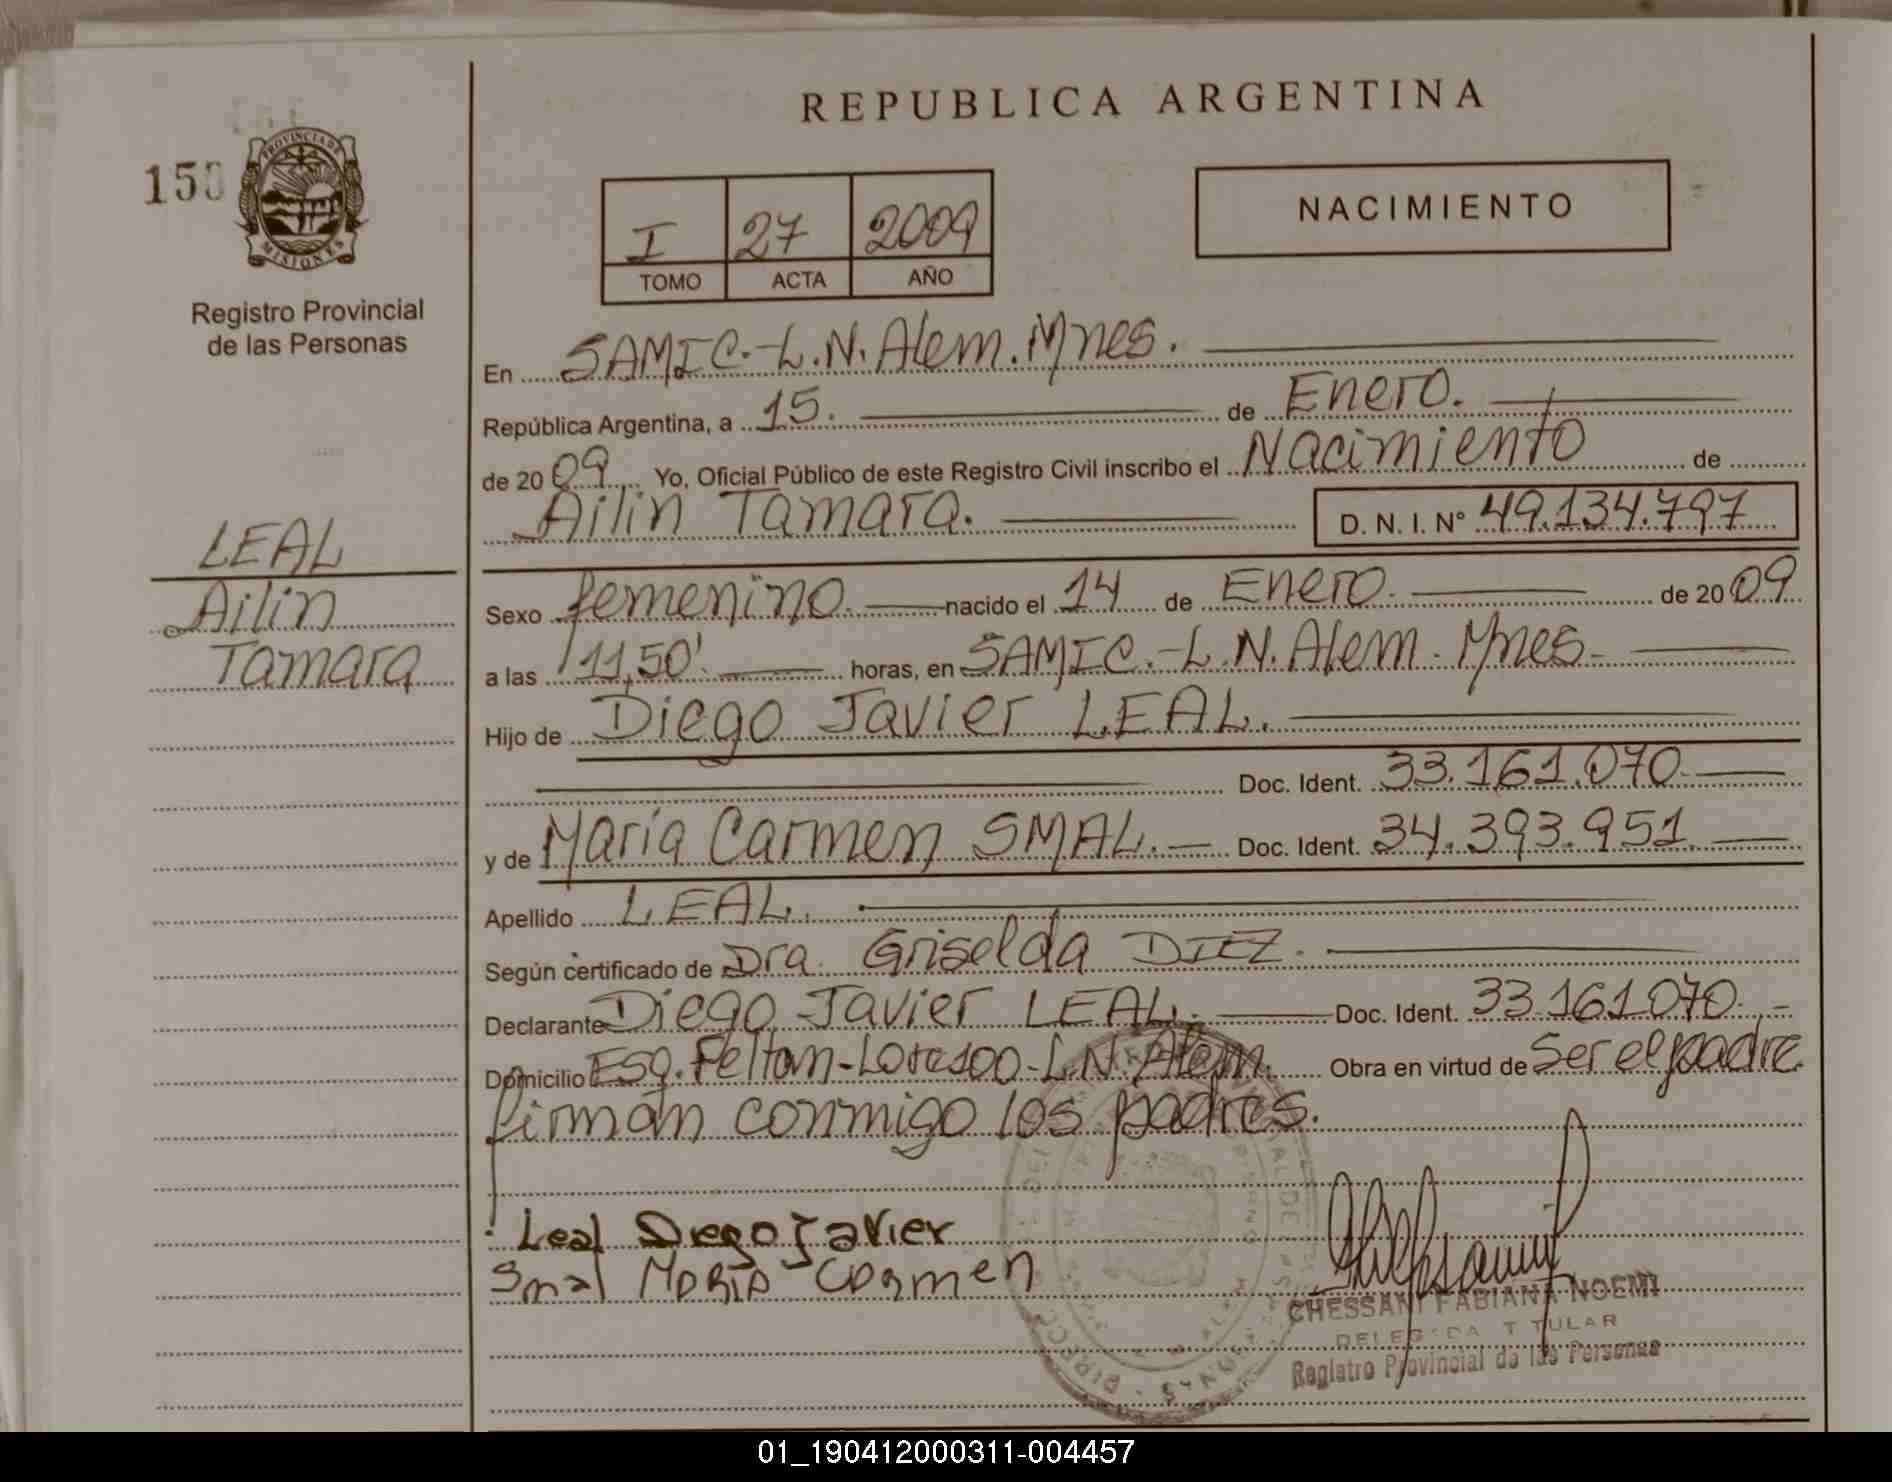 REPUBLICA ARGENTINA
PROVINCIA DE
MISIONES
Registro Provincial
de las Personas
NACIMIENTO
I 27 2009
TOMO ACTA AÑO
En SAMIC.-L.N.Alem.Mnes.
República Argentina, a 15. de Enero.
de 2009 Yo, Oficial Público de este Registro Civil inscribo el Nacimiento de
Ailin Tamara. D. N. I. N° 49.134.797
LEAL
Ailin
Tamara
Sexo femenino. nacido el 14 de Enero. de 2009
a las 11,50'. horas, en SAMIC.-L.N.Alem. Mnes-
Hijo de Diego Javier LEAL.
Doc. Ident. 33.161.070-
y de María Carmen SMAL.- Doc. Ident. 34.393.951.
Apellido LEAL.
Según certificado de Dra. Griselda DIEZ.
Declarante Diego Javier LEAL. Doc. Ident. 33.161.070.-
Domicilio Esq. L.N.Alem. Obra en virtud de Ser el padre.
firman conmigo los padres.
Leal Diego Javier
Smal Maria Carmen
CHESSANI FABIANA NOEMI
DELEGADA TITULAR
Registro Provincial de las Personas
01_190412000311-004457